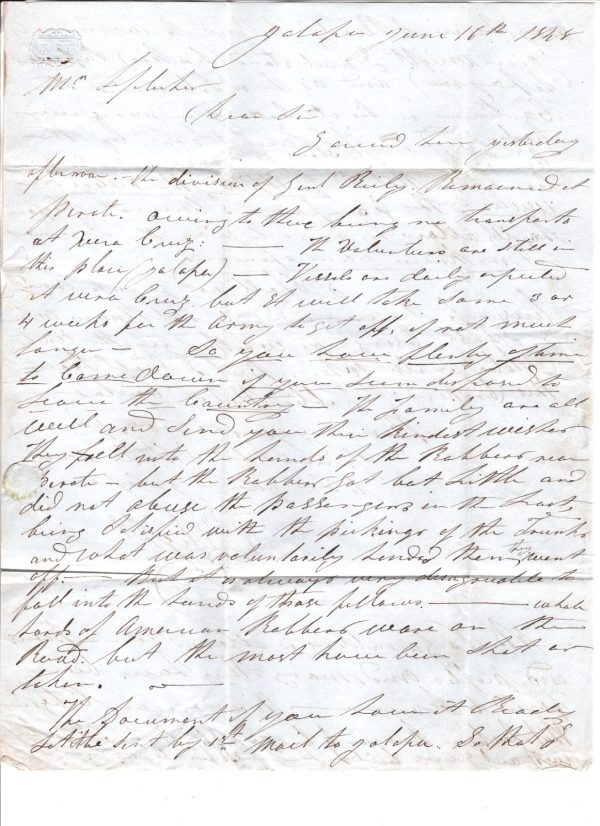 Jalapa June 16th 1848
Mr
Dear Sir
I arrived here yesterday
afternoon. - the division of Genl Reily. Remained at
Perote. owing to there being no transports
at Vera Cruz: — The Volunteers are still in
this place (Jalapa) — Vessels are daily expected
at vera Cruz, but it will take some 3 or
4 weeks for the army to get off, if not much
longer - So you have plenty of time
to Come down if you seem disposed to
Leave the Country - The Family are all
well and send you their kindest wishes
They fell into the hands of the Robbers near
Perote - but the Robbers Got but little and
did not abuse the passengers in the least,
being Satisfied with the pickings of the Trunks
and what was voluntarily handed them they went
off. - But it is always very disagreeable to
fall into the hands of those fellows. — whole
hords of American Robbers ware on the
Road. but the most have been shot or
taken. —
The Document if you have it Ready
let it be sent by 1st Mail to Jalapa. So that I